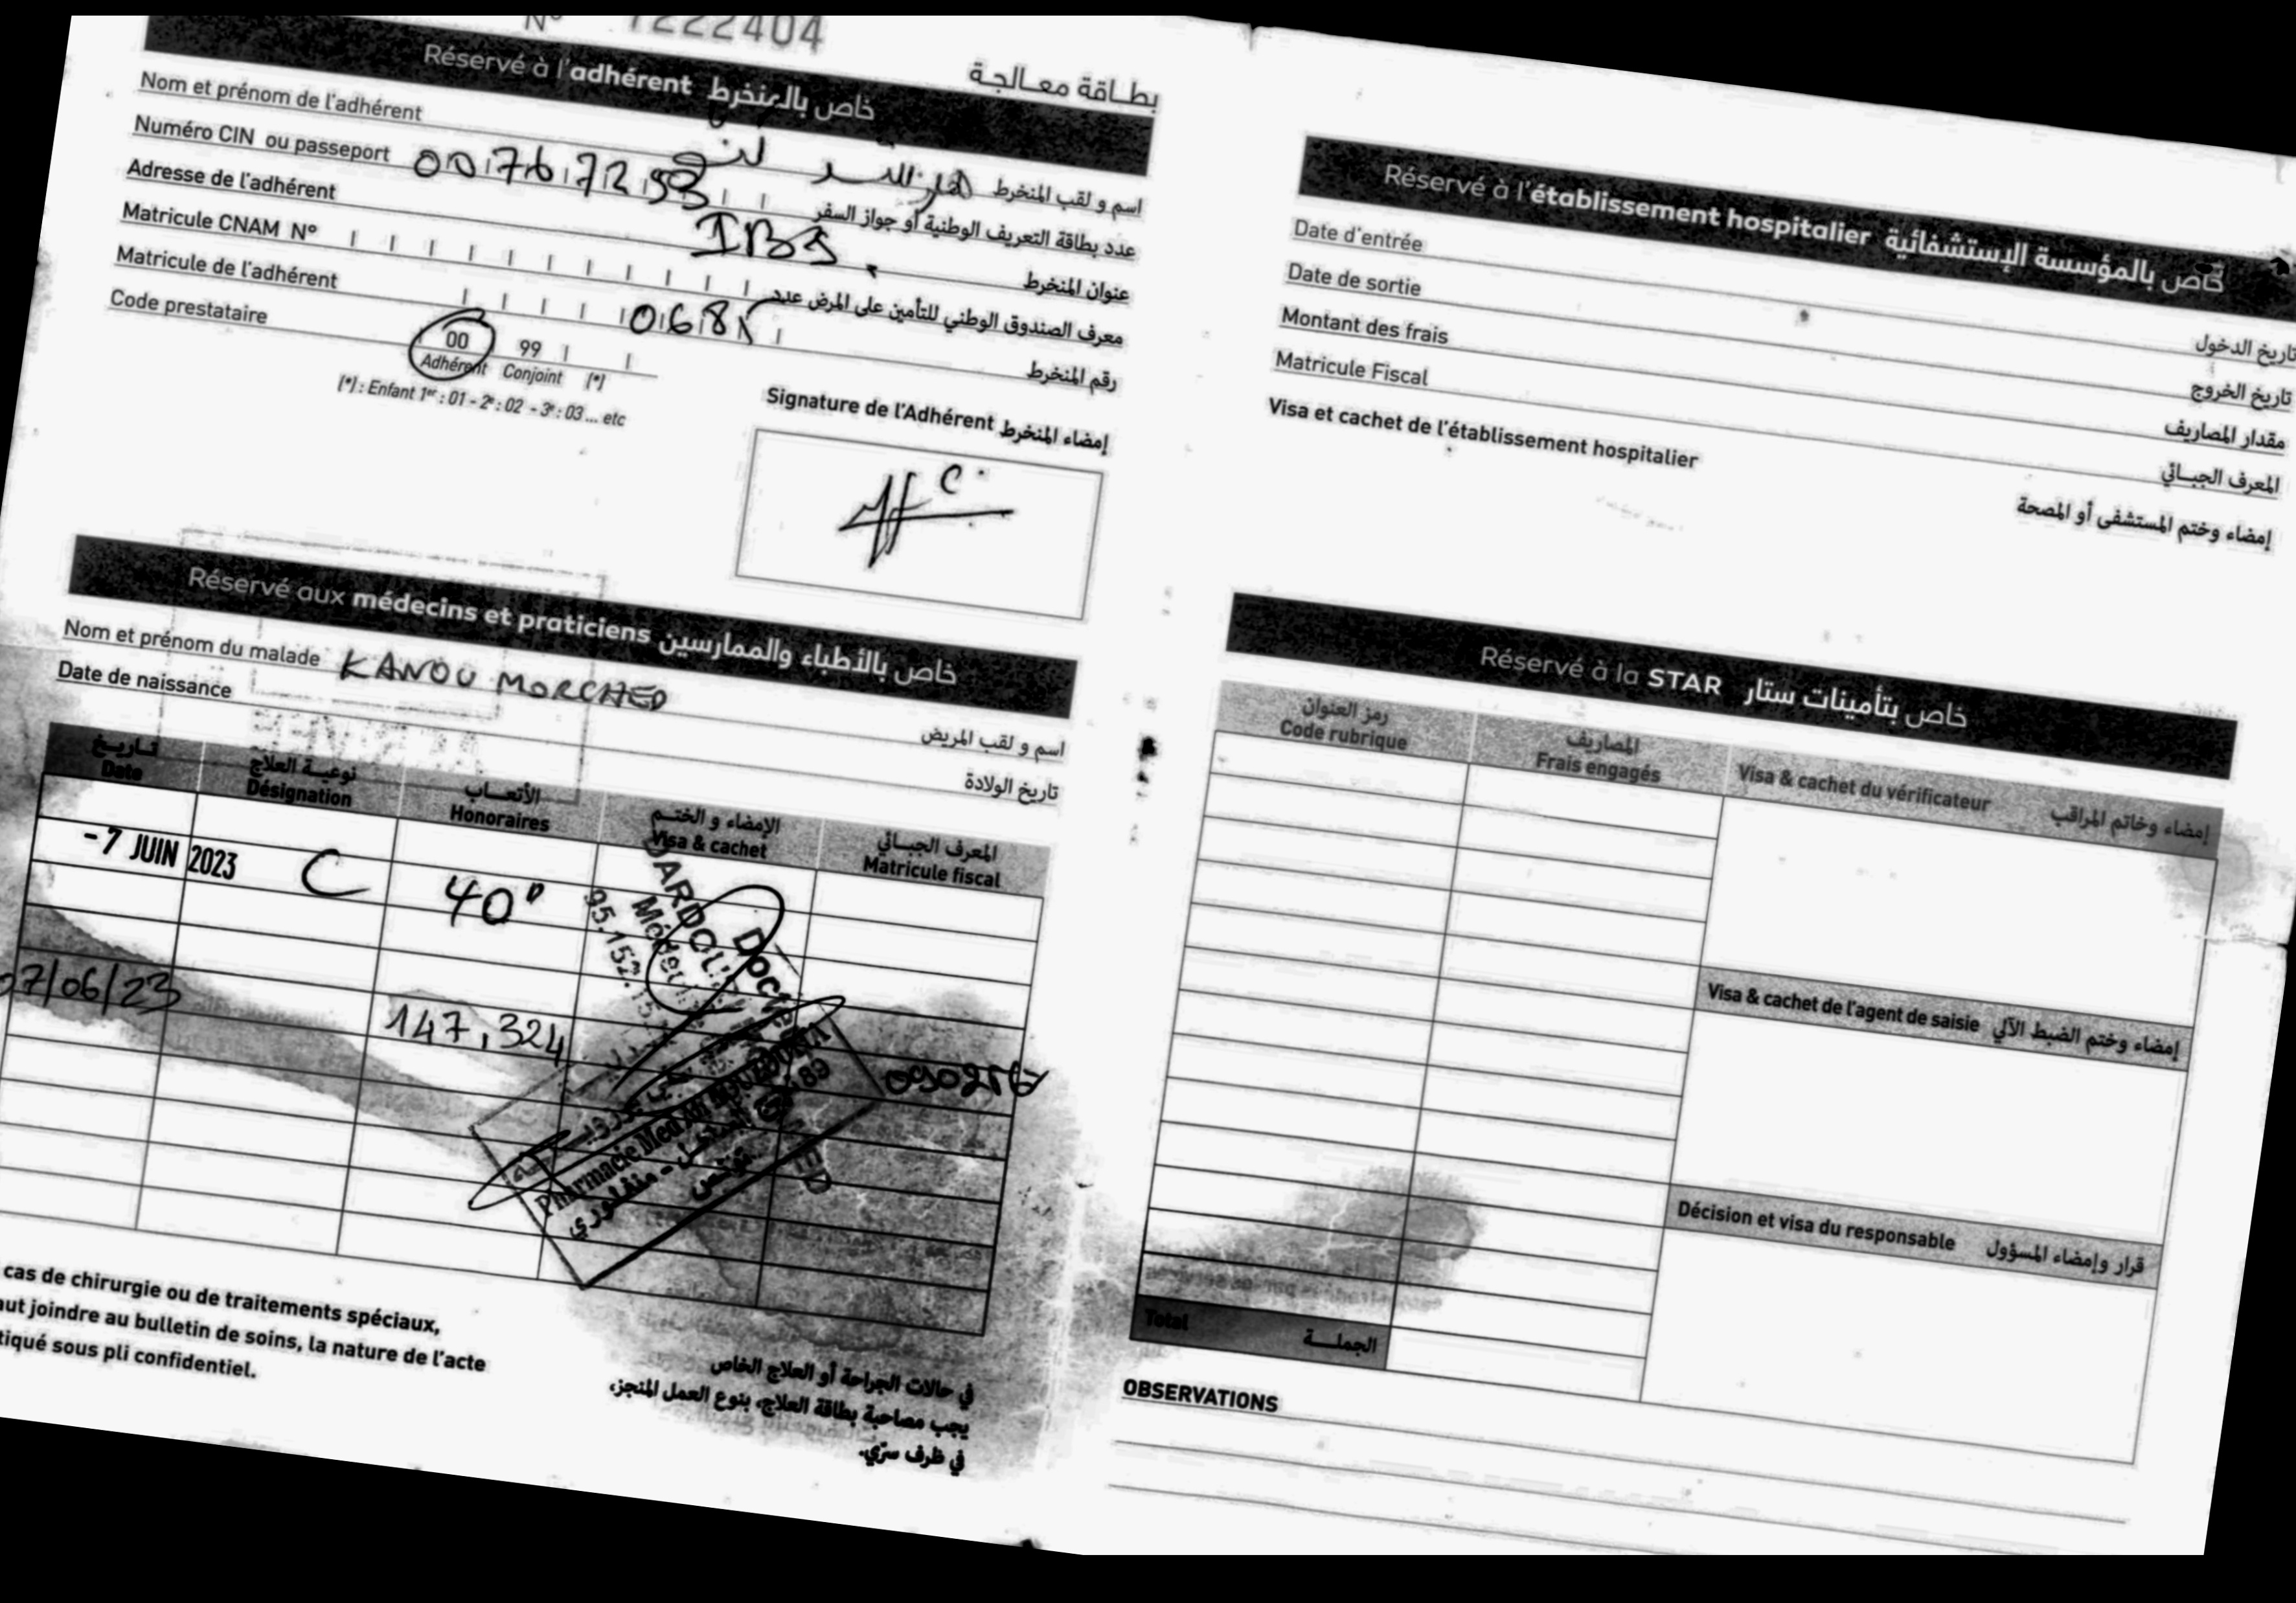 N° 1222404
بطـاقة معـالجـة
Réservé à l'adhérent خاص بالمنخرط
Nom et prénom de l'adhérent اسم و لقب المنخرط
Numéro CIN ou passeport عدد بطاقة التعريف الوطنية أو جواز السفر
Adresse de l'adhérent IBS عنوان المنخرط
Matricule CNAM N° معرف الصندوق الوطني للتأمين على المرض عدد
Matricule de l'adhérent رقم المنخرط
Code prestataire 00 99
Adhérent Conjoint (*)
(*) : Enfant 1er : 01 - 2e : 02 - 3e : 03 ... etc
Signature de l'Adhérent إمضاء المنخرط
Réservé aux médecins et praticiens خاص بالأطباء والممارسين
Nom et prénom du malade KANOU MORCHED اسم و لقب المريض
Date de naissance تاريخ الولادة
تـاريـخ نوعيـة العلاج الأتعـاب الإمضاء و الختـم المعرف الجبـائي
Date Désignation Honoraires Visa & cachet Matricule fiscal
- 7 JUIN 2023 C 40D
07/06/23 147,324
Pharmacie Med Ali
cas de chirurgie ou de traitements spéciaux,
aut joindre au bulletin de soins, la nature de l'acte
tiqué sous pli confidentiel.
في حالات الجراحة أو العلاج الخاص
يجب مصاحبة بطاقة العلاج، بنوع العمل المنجز،
في ظرف سرّي.
Réservé à l'établissement hospitalier خاص بالمؤسسة الإستشفائية
Date d'entrée تاريخ الدخول
Date de sortie تاريخ الخروج
Montant des frais مقدار المصاريف
Matricule Fiscal المعرف الجبـائي
Visa et cachet de l'établissement hospitalier إمضاء وختم المستشفى أو المصحة
Réservé à la STAR خاص بتأمينات ستار
رمز العنوان المصاريف
Code rubrique Frais engagés Visa & cachet du vérificateur إمضاء وخاتم المراقب
Visa & cachet de l'agent de saisie إمضاء وختم الضبط الآلي
Décision et visa du responsable قرار وإمضاء المسؤول
Total الجملـــة
OBSERVATIONS